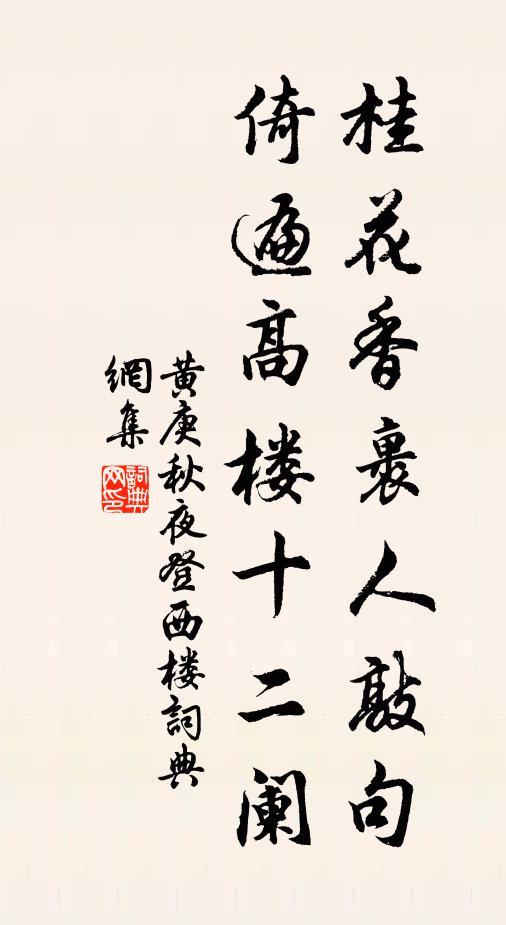 桂花香裹人敲句
倚遍高楼十二阑
黄庚秋夜登西楼詞典
網集
詞典
网印